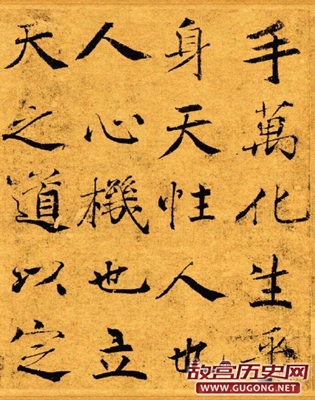 手萬化生乎
身天性人也
人心機也立
天之道以定
故宫历史网
WWW.GUGONG.NET